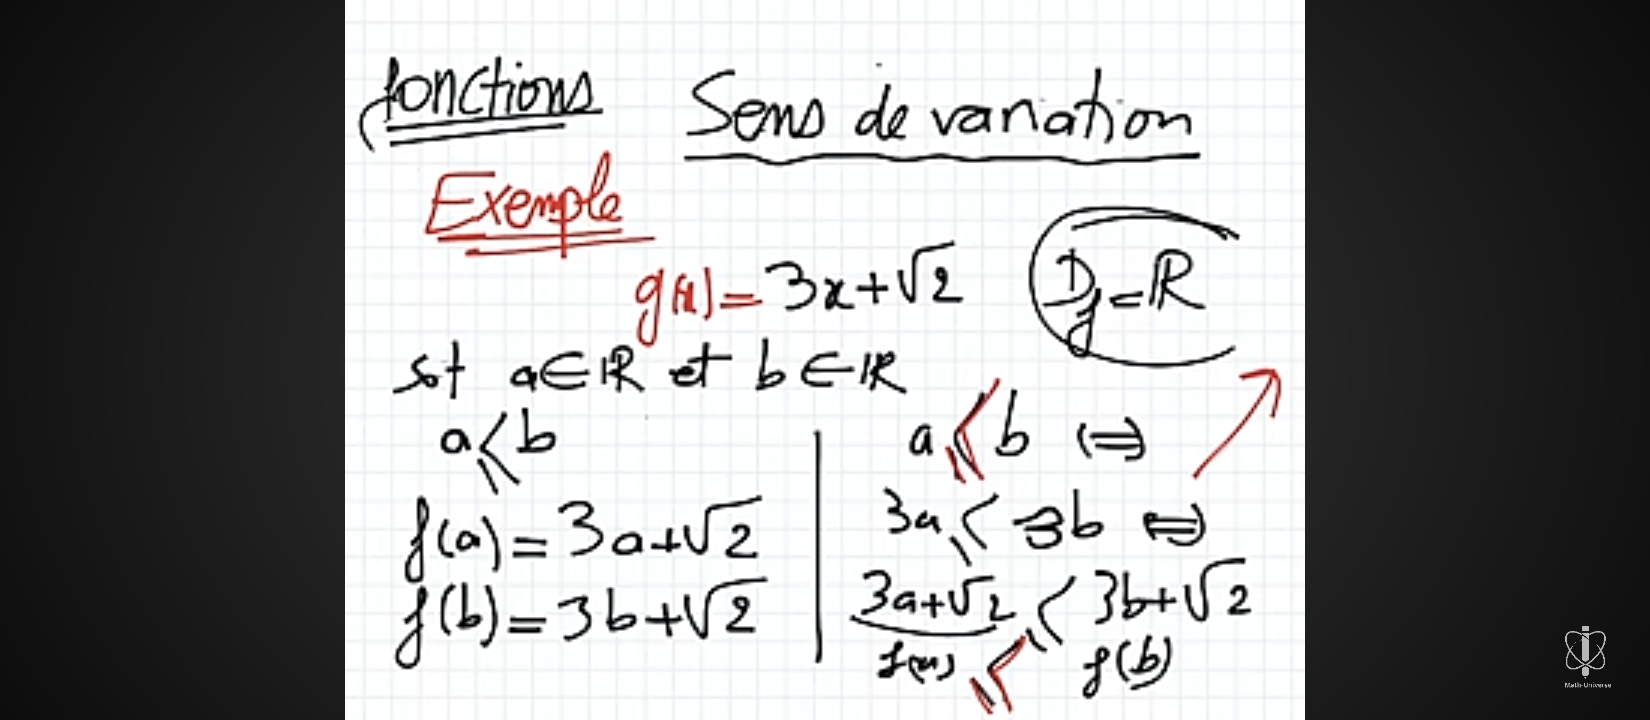 fonctions
Sens de variation
Exemple
g(x) = 3x+√2
D_f = ℝ
sot a∈ℝ et b∈ℝ
a ⩽ b
f(a) = 3a+√2
f(b) = 3b+√2
a ⩽ b ⟺
3a ⩽ 3b ⟺
3a+√2 ⩽ 3b+√2
f(a) ⩽ f(b)
Math-Universe